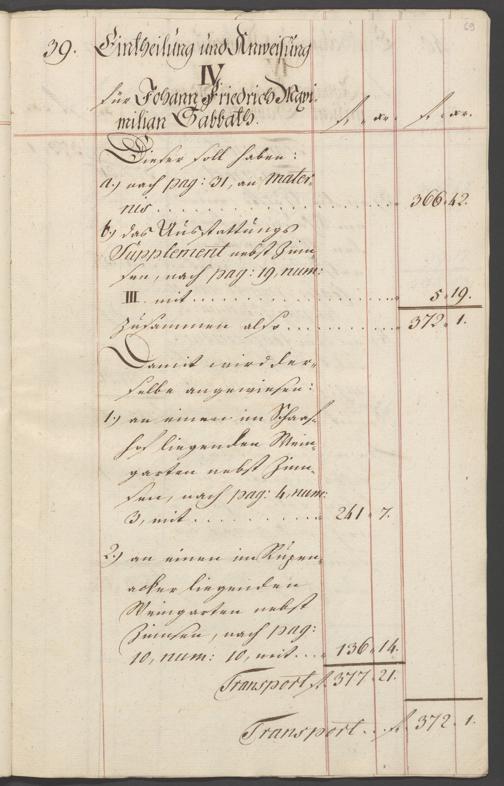 69
39. Eintheilung und Anweisung
IV.
für Johann Friedrich Maxi-
milian Sabbath.
fl. xr. fl. xr.
Dieser soll haben:
a.) nach pag: 31, an mater-
nis . . . . . . . . . . 366. 42.
b.) das Ausstattungs
Supplement nebst Zinn-
sen, nach pag: 19, num:
III. mit . . . . . . . . . 5. 19.
Zusammen also . . . . . . 372. 1.
Damit wird der-
selbe angewiesen:
1.) an einen im Schaaf-
hof liegenden Wein-
garten nebst Zinn-
sen, nach pag: 4, num:
3, mit . . . . . . . 241. 7.
2.) an einen im
acker liegenden
Weingarten nebst
Zinnsen, nach pag:
10, num: 10, mit . . . 136. 14.
Transport fl. 377. 21.
Transport . . fl. 372. 1.